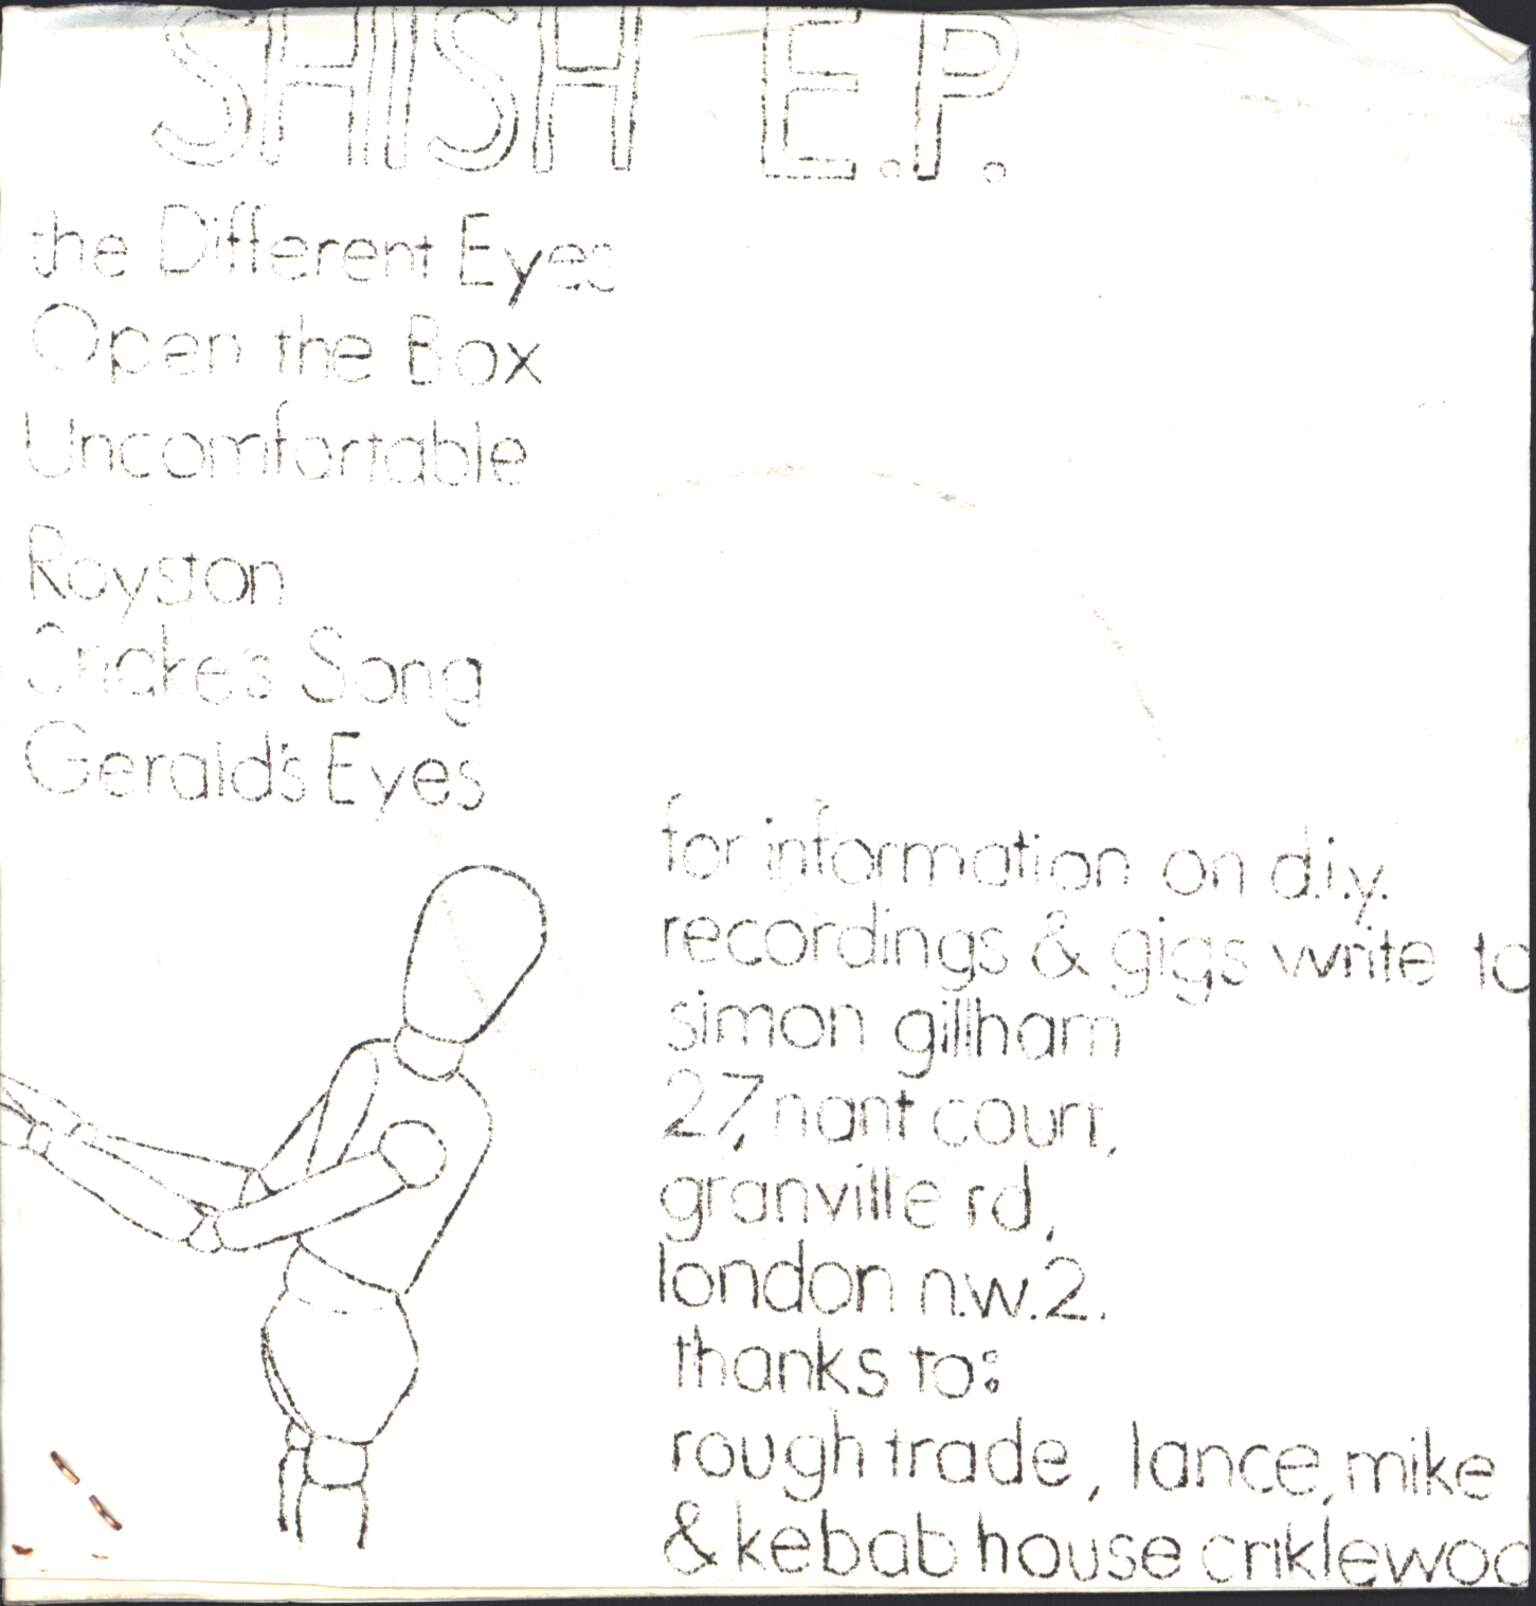 SHISH E.P.
the Different Eyes
Open the Box
Uncomfortable
Royston
Snake's Song
Gerald's Eyes
for information on d.i.y.
recordings & gigs write to
simon gillham
27, nant court,
granville rd,
london n.w.2.
thanks to:
rough trade, lance, mike
& kebab house criklewoo